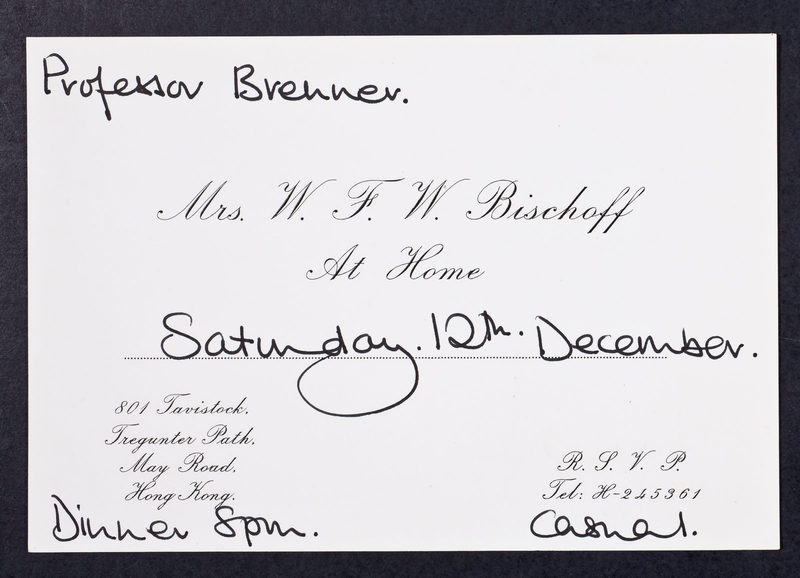 Professor Brenner.
Mrs. W. F. W. Bischoff
At Home
Saturday. 12th. December.
801 Tavistock,
Tregunter Path,
May Road,
Hong Kong.
R. S. V. P.
Tel: H-245361
Dinner 8pm.
Casual.